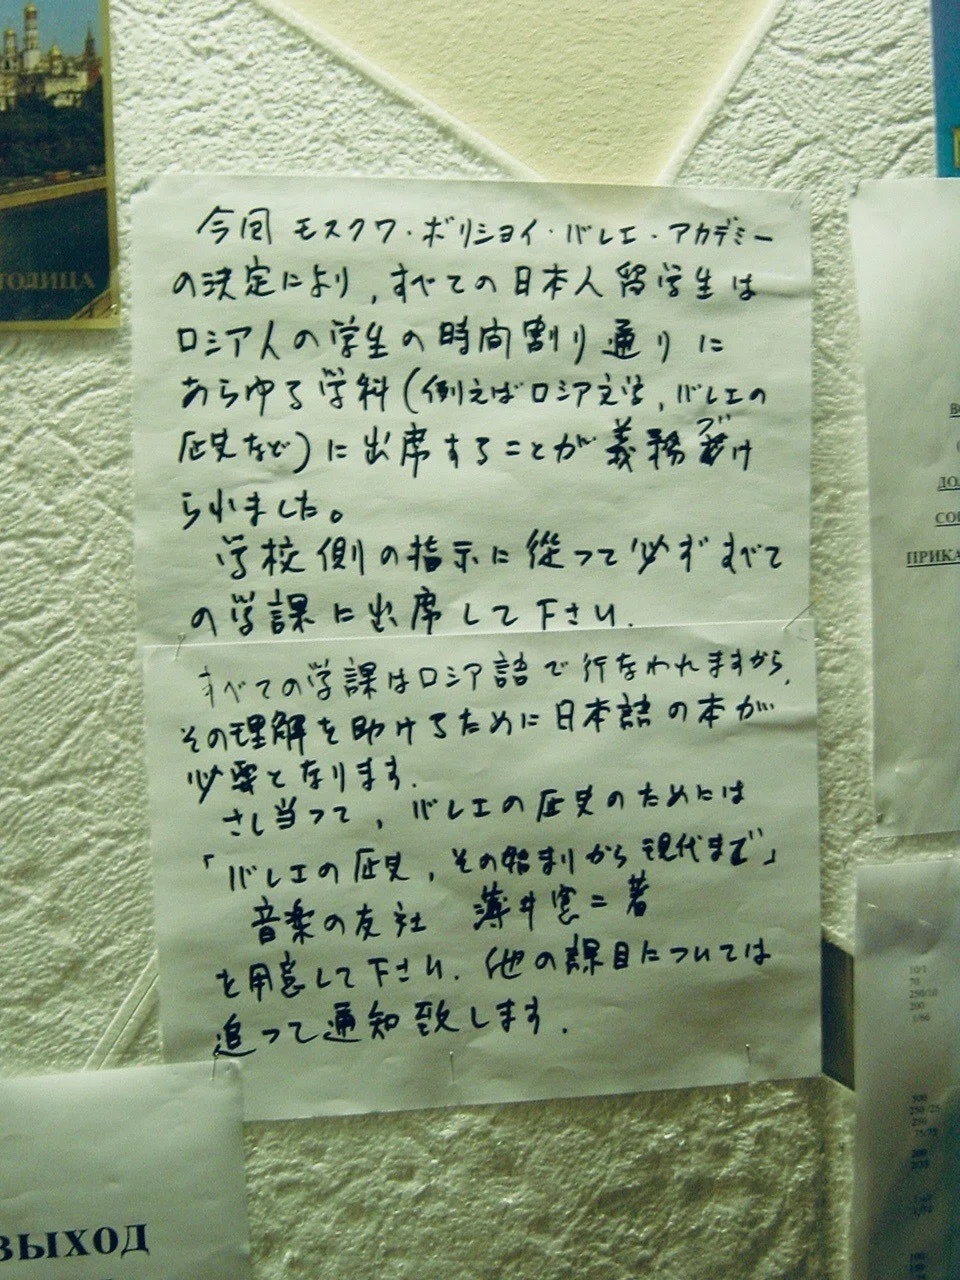 今回 モスクワ・ボリショイ・バレエ・アカデミー
の決定により,すべての日本人留学生は
ロシア人の学生の時間割り通りに
あらゆる学科(例えばロシア文学,バレエの
歴史など)に出席することが義務づけ
られました。
学校側の指示に従って必ずすべて
の学課に出席して下さい.
すべての学課はロシア語で行なわれますから,
その理解を助けるために日本語の本が
必要となります.
さし当って,バレエの歴史のためには
「バレエの歴史,その始まりから現代まで」
音楽の友社 薄井憲二著
を用意して下さい.他の課目については
追って通知致します.
ТОЛИЦА
ПРИКА
ВЫХОД